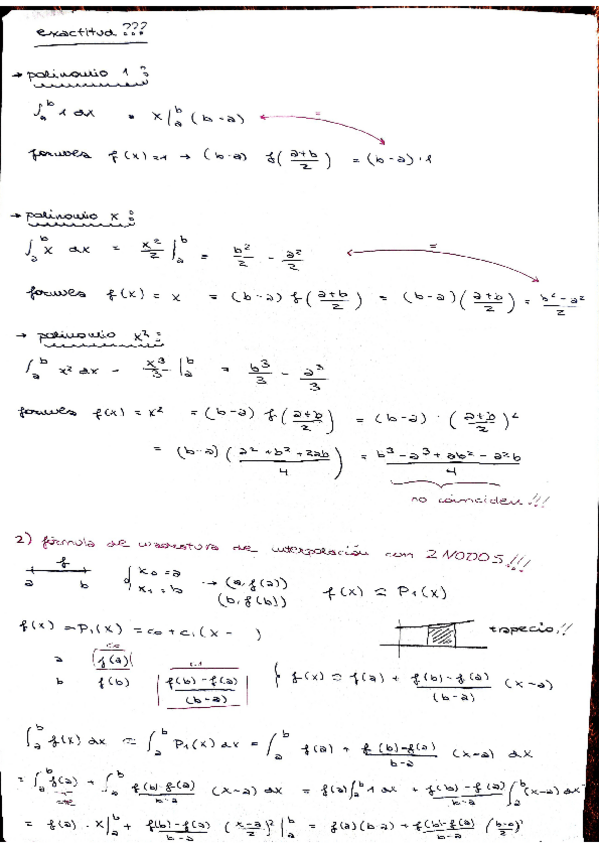 exactitud ???
→ polinomio 1 :
∫_a^b 1 dx = x|_a^b (b-a) =
formules f(x)=1 → (b-a) f((a+b)/2) = (b-a)·1
→ polinomio x :
∫_a^b x dx = x²/2 |_a^b = b²/2 - a²/2 =
formules f(x) = x = (b-a) f((a+b)/2) = (b-a)((a+b)/2) = (b²-a²)/2
→ polinomio x² :
∫_a^b x² dx - x³/3 |_a^b = b³/3 - a³/3
formules f(x) = x² = (b-a) f((a+b)/2) = (b-a)·((a+b)/2)²
= (b-a)((a²+b²+2ab)/4) = (b³-a³+ab²-a²b)/4
no coinciden !!!
2) fórmula de cuadratura de interpolación con 2 NODOS !!!
f
a b { x₀ = a → (a, f(a))
x₁ = b (b, f(b)) f(x) ≃ P₁(x)
f(x) ≃ P₁(x) = c₀ + c₁(x - ) trapecio!!
c₀
a f(a) c₁
b f(b) (f(b)-f(a))/(b-a) } f(x) ≃ f(a) + (f(b)-f(a))/(b-a) (x-a)
∫_a^b f(x) dx ≃ ∫_a^b P₁(x) dx = ∫_a^b f(a) + (f(b)-f(a))/(b-a) (x-a) dx
= ∫_a^b f(a) + ∫_a^b (f(b)-f(a))/(b-a) (x-a) dx = f(a)∫_a^b 1 dx + (f(b)-f(a))/(b-a) ∫_a^b (x-a) dx
= f(a)·x|_a^b + (f(b)-f(a))/(b-a) (x-a)²/2 |_a^b = f(a)(b-a) + (f(b)-f(a))/(b-a) (b-a)²/2